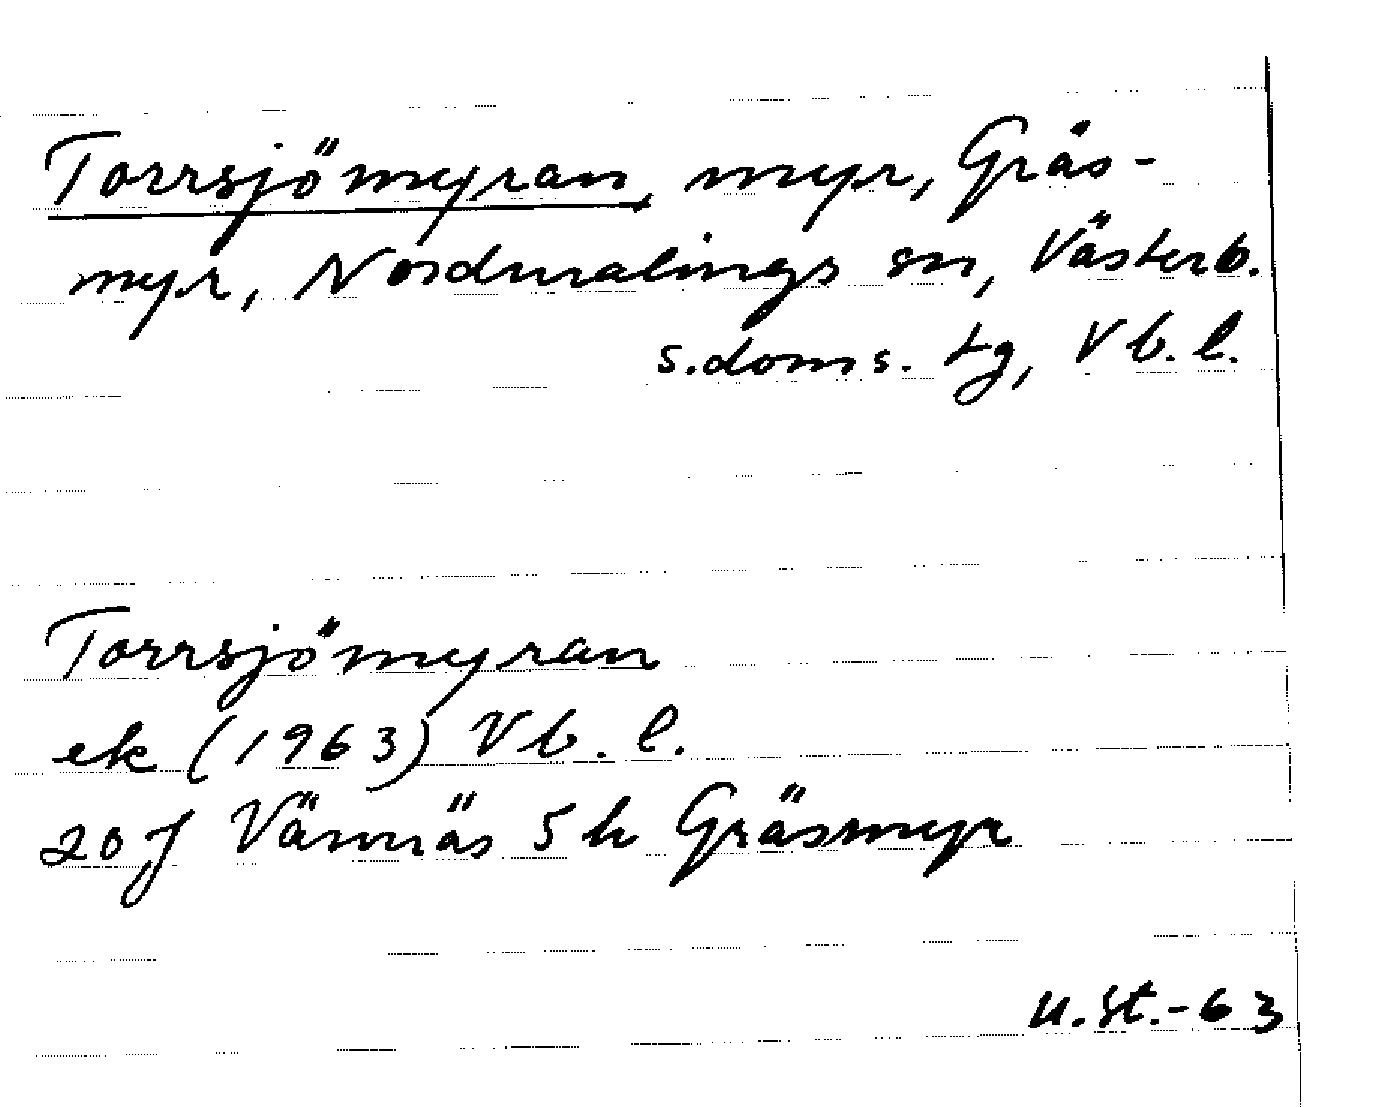 Torrsjömyran, myr, Gräs-
myr, Nordmalings sn, Västerb.
s.doms. tg, Vb. l.
Torrsjömyran
ek (1963) Vb. l.
20 J Vännäs 5 h Gräsmyr
U.St.-63